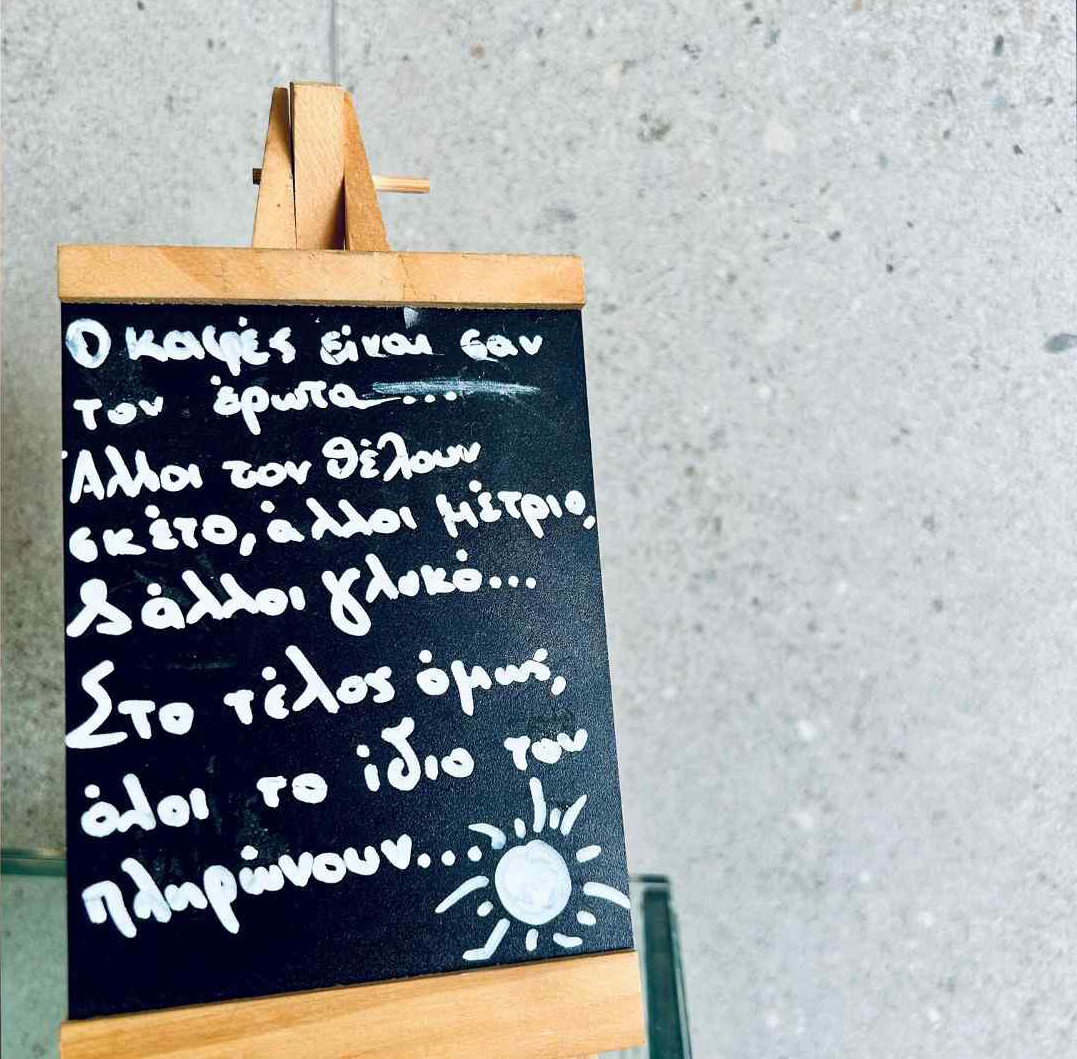 Ο καφές είναι σαν
τον έρωτα...
Άλλοι τον θέλουν
σκέτο, άλλοι μέτριο,
& άλλοι γλυκό...
Στο τέλος όμως,
όλοι το ίδιο τον
πληρώνουν...